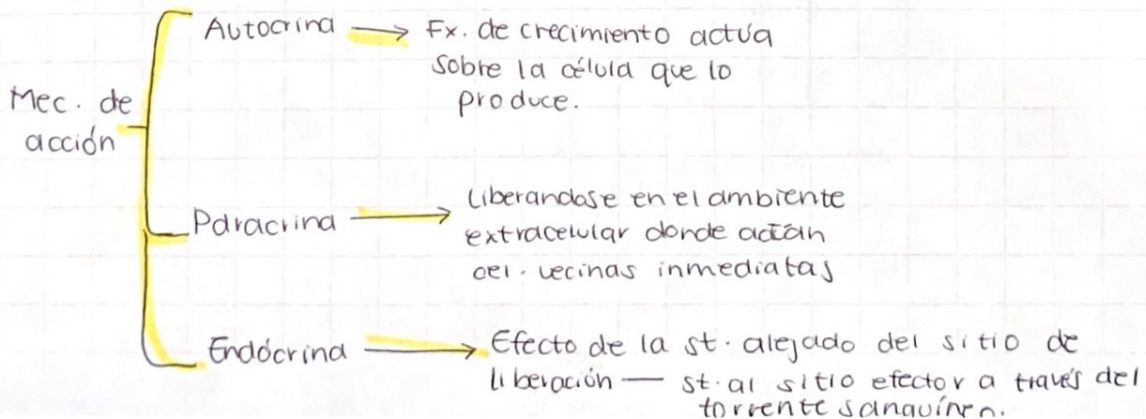 Mec. de
acción
Autocrina → Fx. de crecimiento actúa
sobre la célula que lo
produce.
Paracrina → Liberandose en el ambiente
extracelular donde actúan
cel. vecinas inmediatas
Endócrina → Efecto de la st. alejado del sitio de
liberación — st. al sitio efector a través del
torrente sanguíneo.